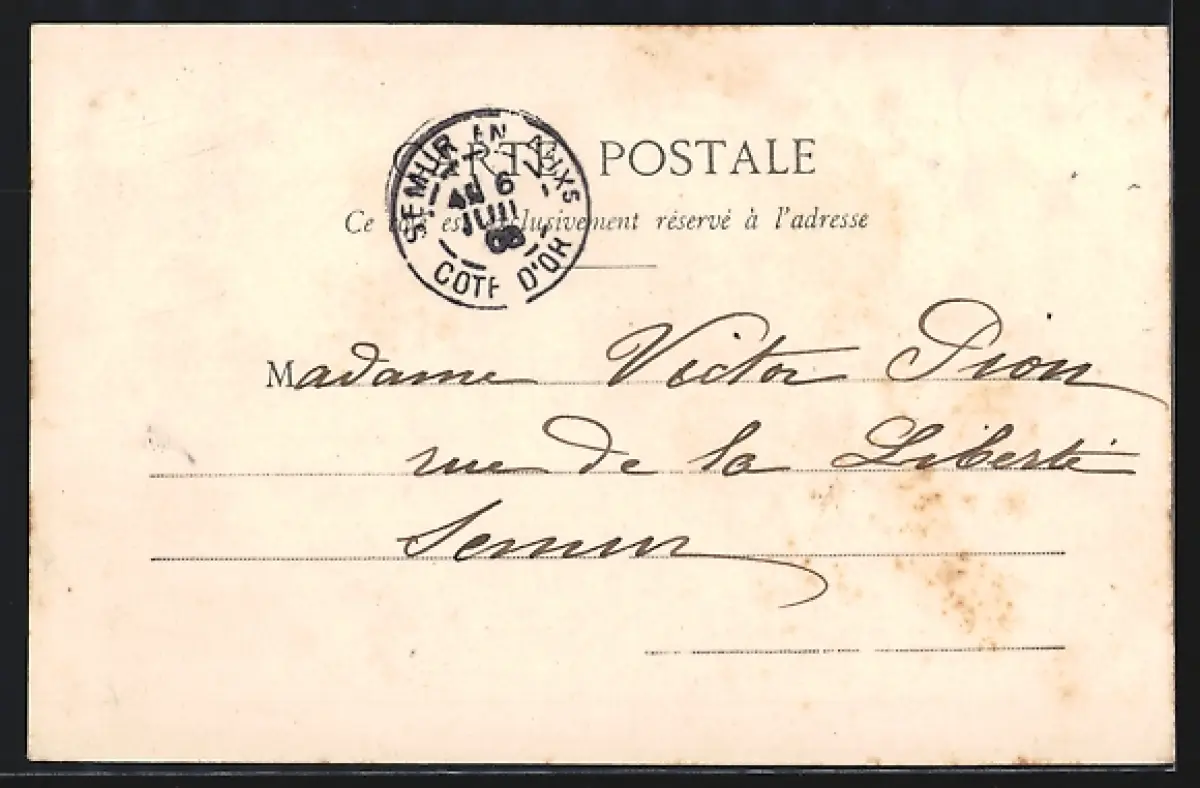 CARTE POSTALE
Ce côté est exclusivement réservé à l'adresse
SEMUR EN AUXOIS
6
JUIL
COTE D'OR
Madame Victor Pion
rue de la Liberté
Semur